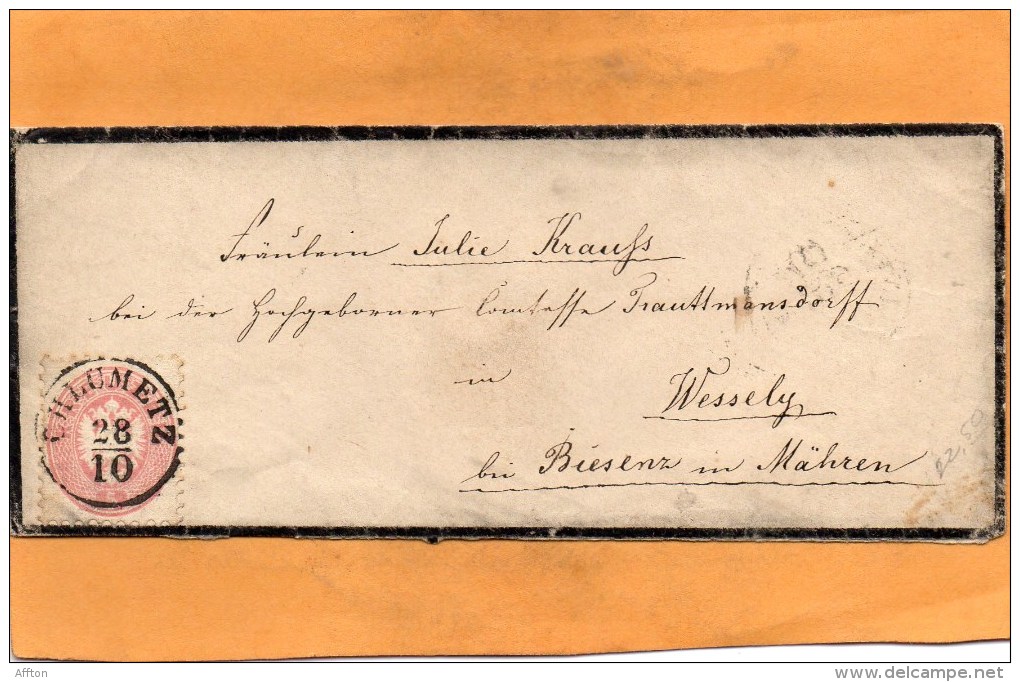 Fräulein Julie Krauss
bei der Hochgeborner Comtesse Trauttmansdorff
in
Wessely
bei Biesenz in Mähren
CHLUMETZ
28
10
22,50
Affton
www.delcampe.net